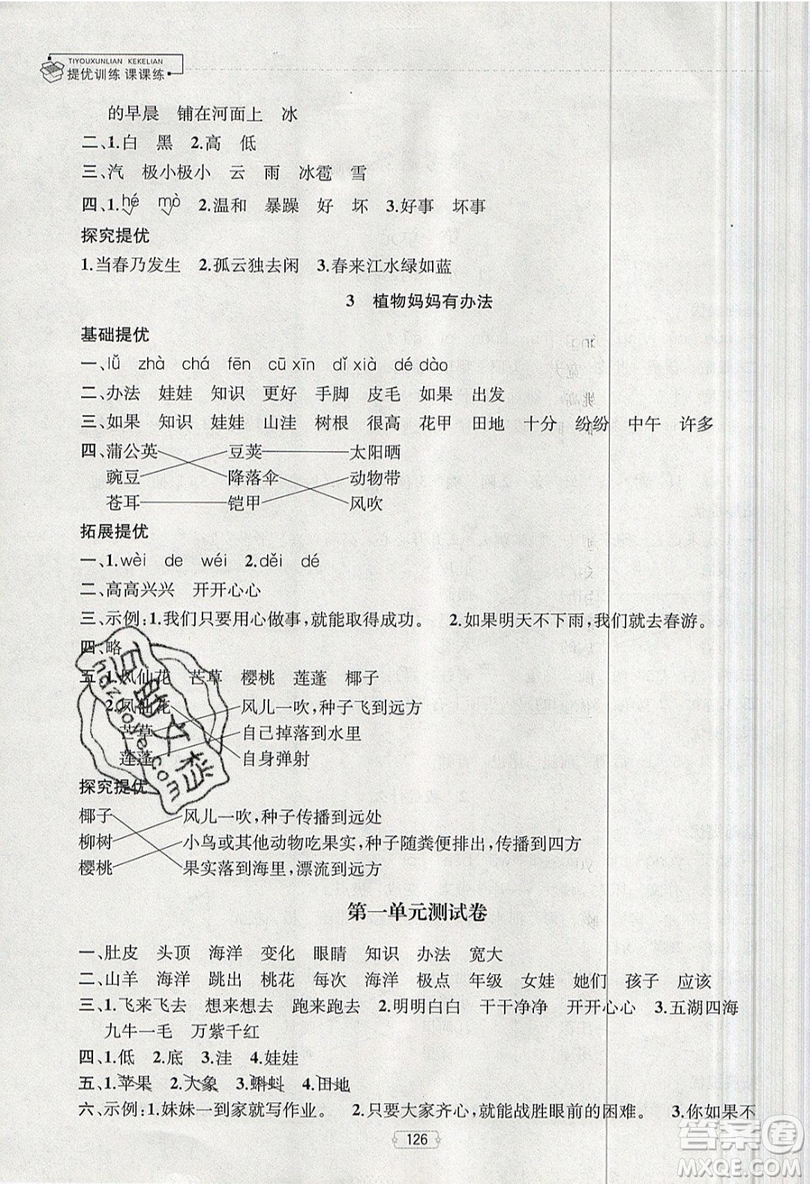 TIYOUXUNLIAN KEKELIAN
提优训练 课课练
的早晨 铺在河面上 冰
二、1.白 黑 2.高 低
三、汽 极小极小 云 雨 冰雹 雪
四、1.hé mò 2.温和 暴躁 好 坏 3.好事 坏事
探究提优
1.当春乃发生 2.孤云独去闲 3.春来江水绿如蓝
3 植物妈妈有办法
基础提优
一、lǚ zhà chá fēn cū xīn dǐ xià dé dào
二、办法 娃娃 知识 更好 手脚 皮毛 如果 出发
三、如果 知识 娃娃 山洼 树根 很高 花甲 田地 十分 纷纷 中午 许多
四、蒲公英 豆荚 太阳晒
豌豆 降落伞 动物带
苍耳 铠甲 风吹
拓展提优
一、1.wèi de wéi 2.děi dé
二、高高兴兴 开开心心
三、示例:1.我们只要用心做事,就能取得成功。 2.如果明天不下雨,我们就去春游。
四、略
五、1.凤仙花 芒草 樱桃 莲蓬 椰子
2.凤仙花 风儿一吹,种子飞到远方
芒草 自己掉落到水里
莲蓬 自身弹射
探究提优
椰子 风儿一吹,种子传播到远处
柳树 小鸟或其他动物吃果实,种子随粪便排出,传播到四方
樱桃 果实落到海里,漂流到远方
第一单元测试卷
一、肚皮 头顶 海洋 变化 眼睛 知识 办法 宽大
二、山羊 海洋 跳出 桃花 每次 海洋 极点 年级 女娃 她们 孩子 应该
三、1.飞来飞去 想来想去 跑来跑去 2.明明白白 干干净净 开开心心 3.五湖四海
九牛一毛 万紫千红
四、1.低 2.底 3.洼 4.娃娃
五、1.苹果 2.大象 3.蝌蚪 4.田地
六、示例:1.妹妹一到家就写作业。 2.只要大家齐心,就能战胜眼前的困难。 3.你如果不
126
百助文档
答案圈
MXQE.COM